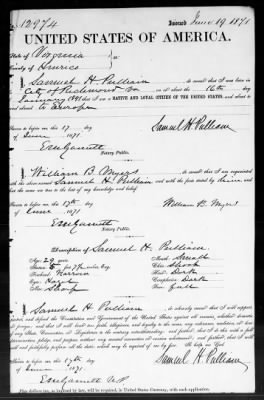 No 12974 Issued June 19 1871
UNITED STATES OF AMERICA.
State of Virginia
County of Henrico
I Samuel H. Pulliam do swear that I was born in
City of Richmond Va on or about the 16th day
January 1841 that I am a NATIVE AND LOYAL CITIZEN OF THE UNITED STATES, and about
to Europe
Sworn to before me this 17 day Samuel H. Pulliam
of June 1871
Notary Public.
I William B. Myers do swear that I am acquainted
with the above named Samuel H. Pulliam and with the facts stated by him, and
that the same are true to the best of my knowledge and belief
Sworn to before me this 17th day William B. Myers
of June 1871
Notary Public.
Description of Samuel H. Pulliam
Age: 29 years Mouth: Small
Stature: 5 feet 7½ inches, Eng. Chin:
Forehead: Narrow Hair: Dark
Eyes: Complexion: Dark
Nose: Sharp Face: Full
I Samuel H. Pulliam do solemnly swear that I will support,
protect, and defend the Constitution and Government of the United States against all enemies, whether domestic
or foreign; and that I will bear true faith, allegiance, and loyalty to the same, any ordinance, resolution, or law
of any State, Convention, or Legislature to the contrary notwithstanding; and further, that I do this with a full
determination, pledge, and purpose, without any mental reservation or evasion whatsoever; and further, that I will
well and faithfully perform all the duties which may be required of me by law. So help me God
Sworn to before me this 17th day Samuel H. Pulliam
of June 1871.
N.P.
Five dollars tax, as imposed by law, will be required in United States Currency, with each application.